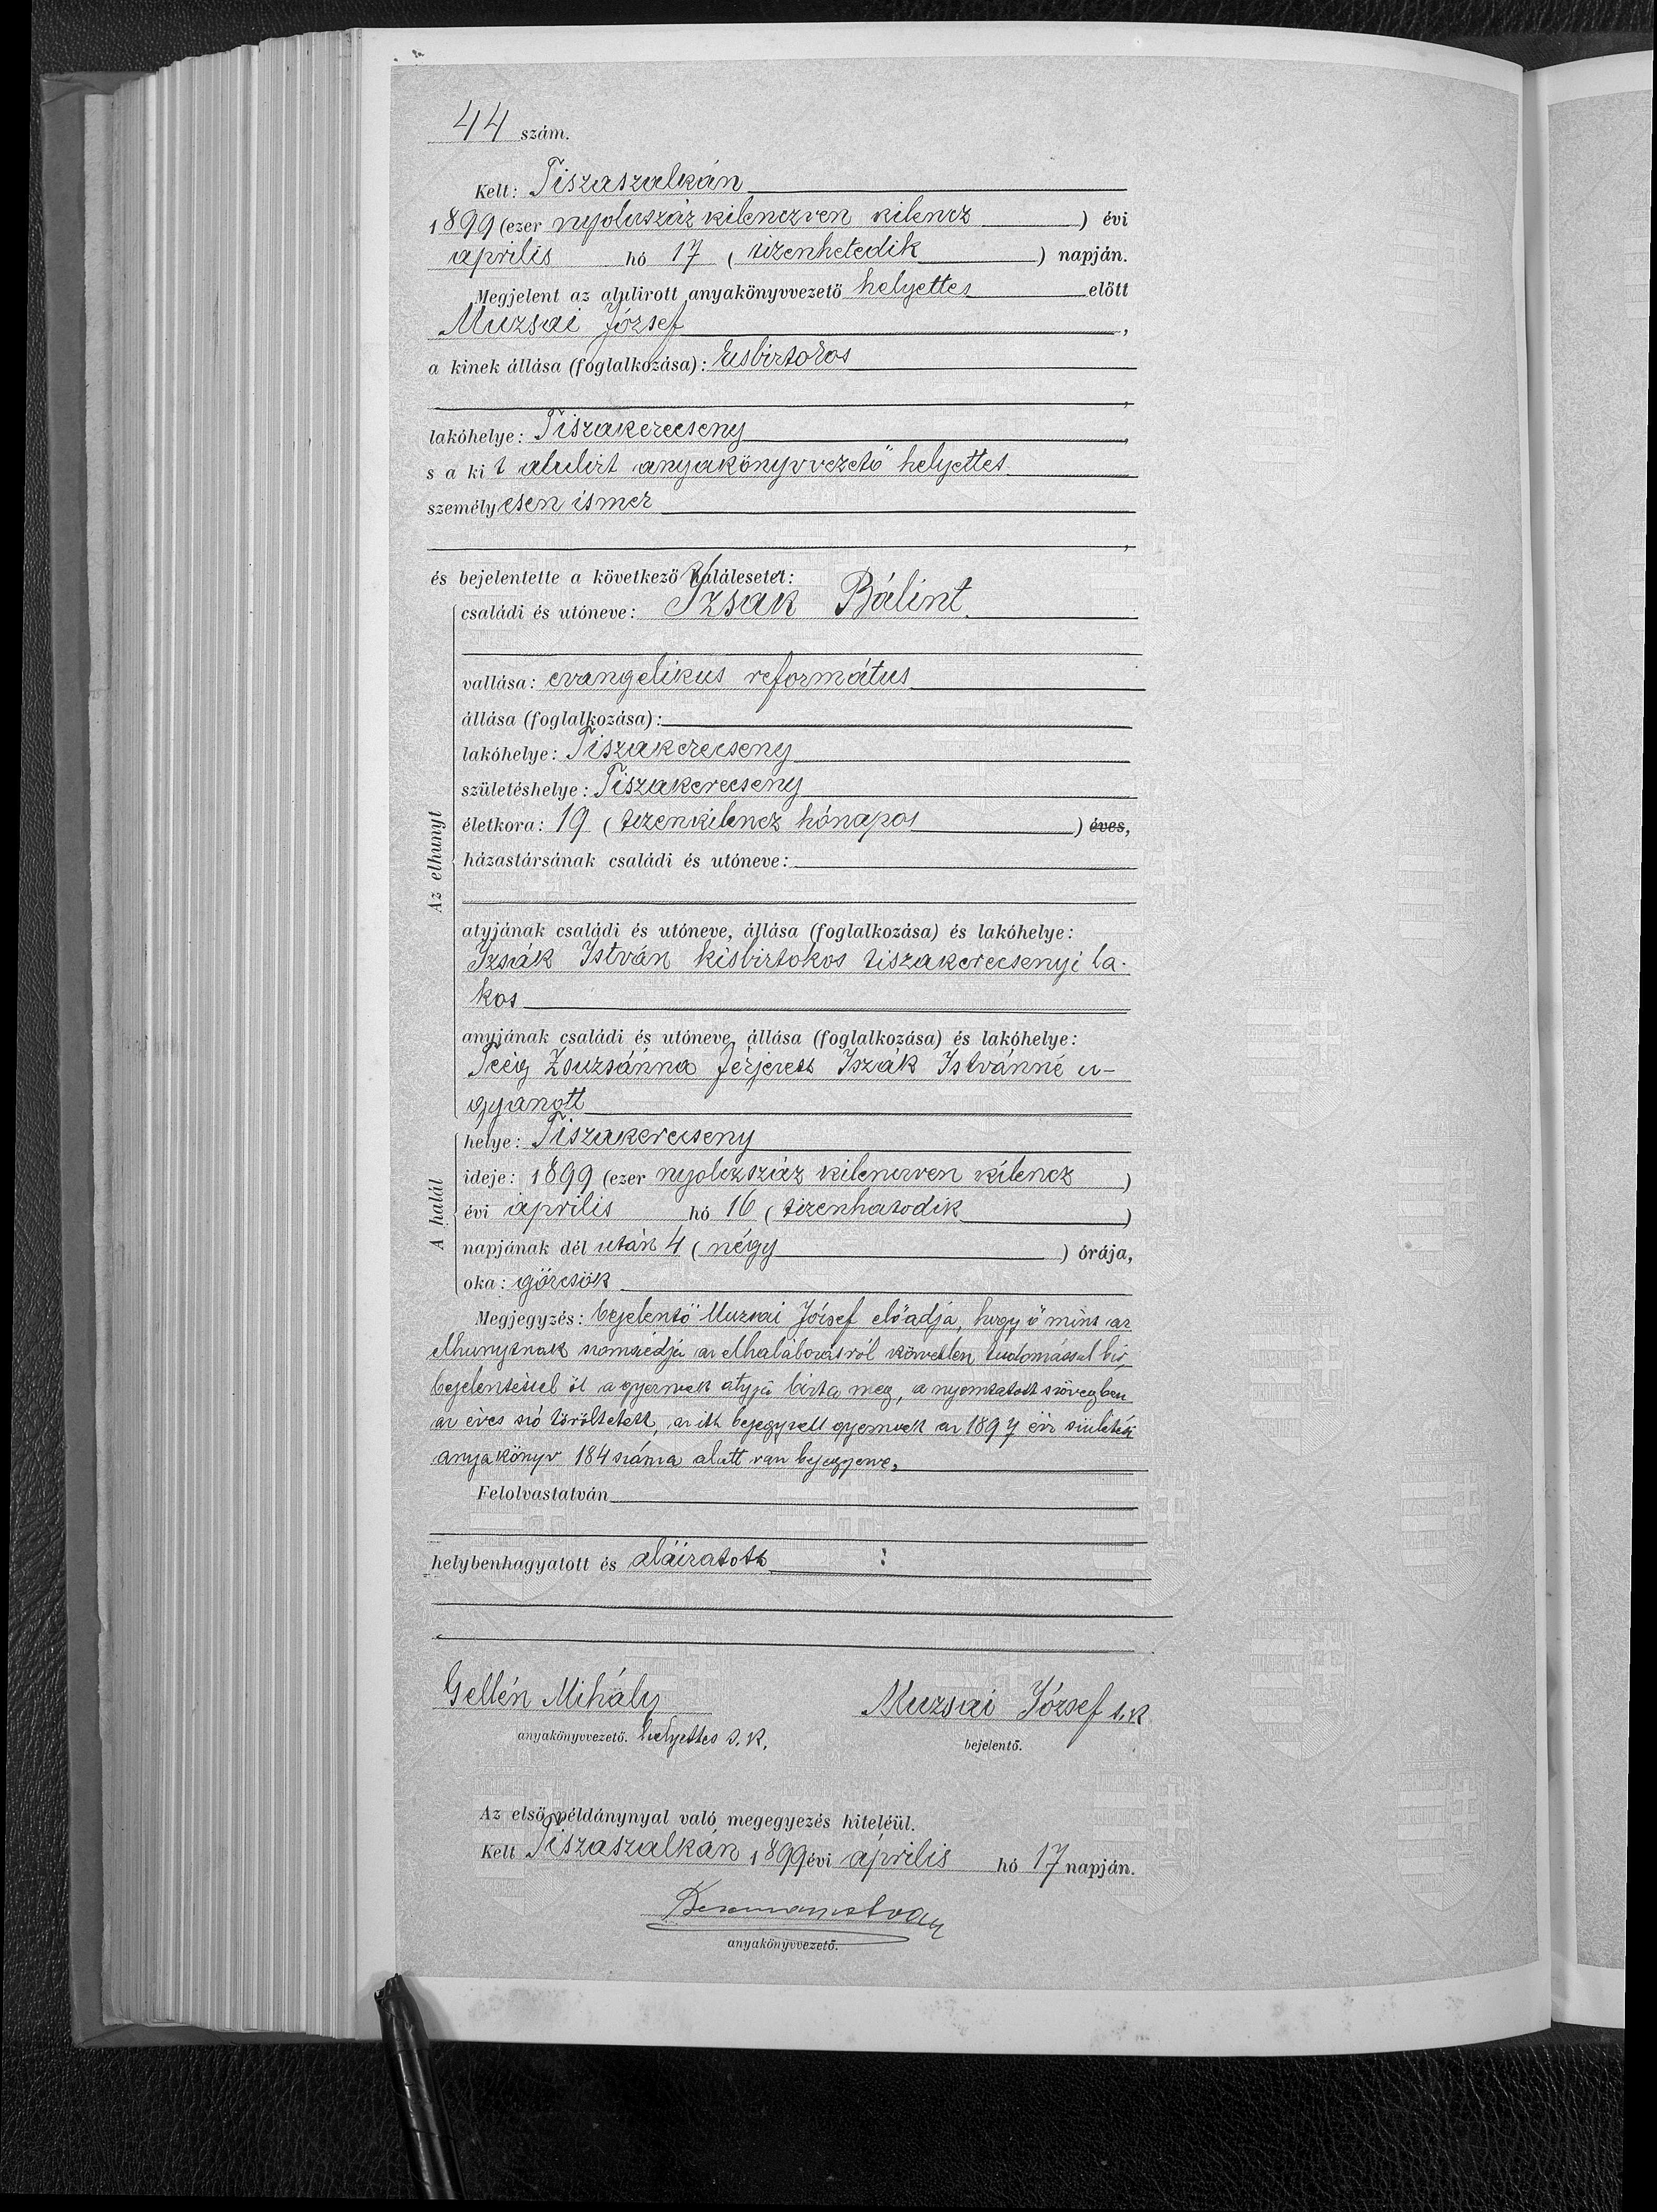 44 szám.
Kelt: Tiszaszalkán
1899 (ezer nyolcszáz kilenczven kilencz ) évi
aprilis hó 17 ( tizenhetedik ) napján.
Megjelent az alulirott anyakönyvvezető helyettes előtt
Muzsai József ,
a kinek állása (foglalkozása): kisbirtokos
,
lakóhelye: Tiszakerecseny ,
s a kit alulirt anyakönyvvezető helyettes
személyesen ismer
,
és bejelentette a következő halálesetet:
Az elhunyt
családi és utóneve: Izsak Bálint
vallása: evangelikus református
állása (foglalkozása):
lakóhelye: Tiszakerecseny
születéshelye: Tiszakerecseny
életkora: 19 ( tizenkilencz hónapos ) éves,
házastársának családi és utóneve:
atyjának családi és utóneve, állása (foglalkozása) és lakóhelye:
Izsák István kisbirtokos tiszakerecsenyi la-
kos
anyjának családi és utóneve, állása (foglalkozása) és lakóhelye:
Zsuzsánna férjezett Iszák Istvánné u-
gyanott
A halál
helye: Tiszakerecseny
ideje: 1899 (ezer nyolczszáz kilenczven kilencz )
évi április hó 16 ( tizenhatodik )
napjának dél után 4 ( négy ) órája,
oka: görcsök
Megjegyzés: bejelentő Muzsai József előadja, hogy ő mint az
elhunytnak szomszédja az elhalálozásról közvetlen tudomással bir,
bejelentéssel öt a gyermek atyja bizta meg, a nyomtatott szövegben
az éves szó töröltetett, az itt bejegyzett gyermek az 1897 évi születési
anyakönyv 184 száma alatt van bejegyezve,
Felolvastatván
helybenhagyatott és aláiratott :
Gellén Mihály Muzsai József s.k.
anyakönyvvezető. helyettes s.k. bejelentő.
Az első példánynyal való megegyezés hiteléül.
Kelt Tiszaszalkán 1899 évi április hó 17 napján.
anyakönyvvezető.